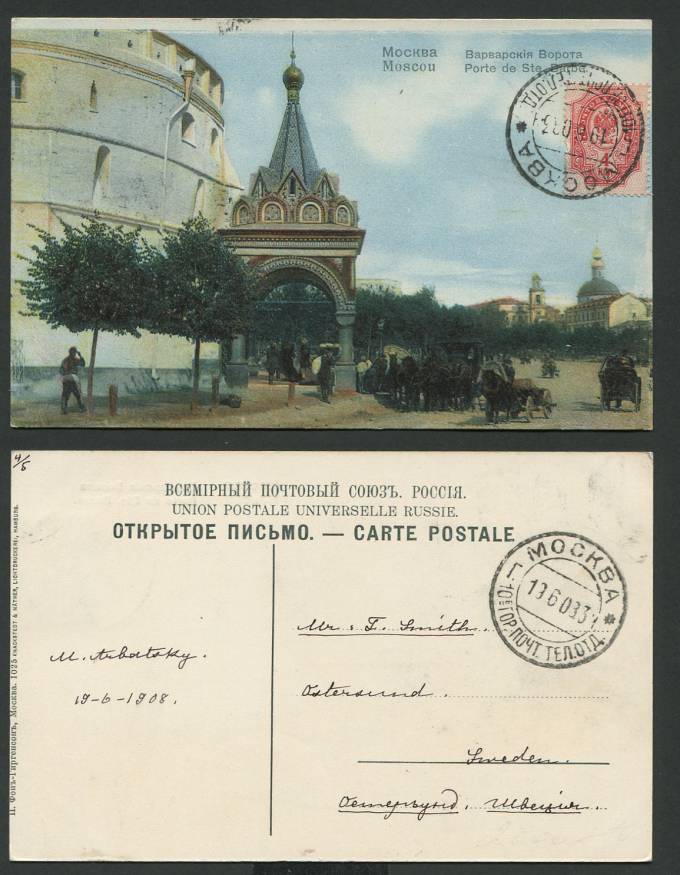 Москва
Moscou
Варварскія Ворота
Porte de Ste. Barbe
МОСКВА
4
4/5
ВСЕМІРНЫЙ ПОЧТОВЫЙ СОЮЗЪ. РОССІЯ.
UNION POSTALE UNIVERSELLE RUSSIE.
ОТКРЫТОЕ ПИСЬМО. — CARTE POSTALE
МОСКВА
19608
10Е ГОР. ПОЧТ. ТЕЛ. ОТД.
M. Arbatsky.
19-6-1908.
Mr. F. Smith.
Ostersund.
Sweden.
Остерзундъ, Швеція.
П. Фонъ-Гиргенсонъ, Москва. 1025 KNACKSTEDT & NÄTHER, LICHTDRUCKEREI, HAMBURG.